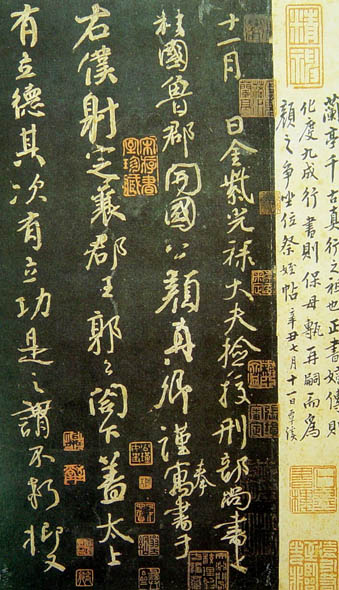 蘭亭千古真行之祖也正書嬗傳則
化度九成行書則保母甎再嗣而爲
顏之爭坐位祭姪帖 辛丑七月十一日覃溪
十一月 日金紫光祿大夫檢校刑部尚書上
柱國魯郡開國公顏真卿謹奉寓書于
右僕射定襄郡王郭公閣下蓋太上
有立德其次有立功是之謂不朽抑又
宋存書室珍藏